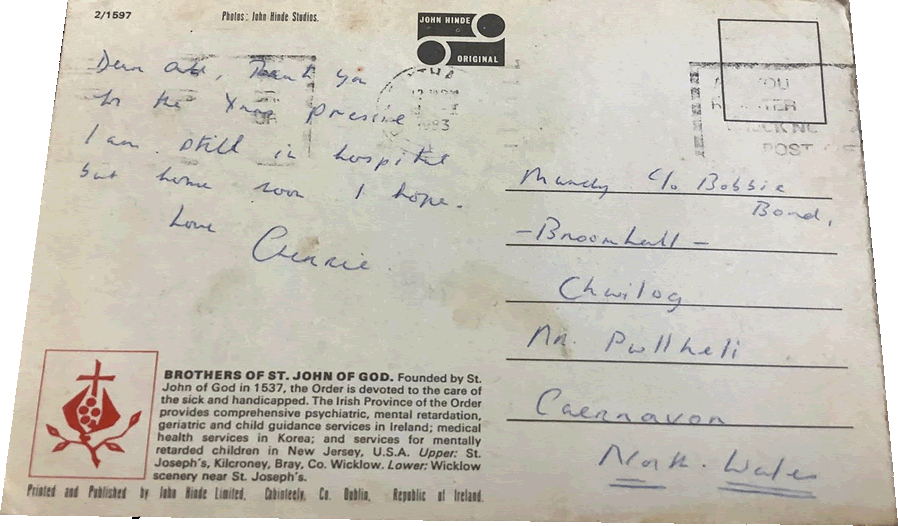 2/1597
Photos: John Hinde Studios.
JOHN HINDE
ORIGINAL
Dear All, Thank you
for the Xmas present
I am still in hospital
but home soon I hope.
Love
YOU
POST
Mundy C/o Bobbie
Bond,
-Broomhall-
Chwilog
Nr. Pwllheli
Caernavon
North. Wales
BROTHERS OF ST. JOHN OF GOD. Founded by St.
John of God in 1537, the Order is devoted to the care of
the sick and handicapped. The Irish Province of the Order
provides comprehensive psychiatric, mental retardation,
geriatric and child guidance services in Ireland; medical
health services in Korea; and services for mentally
retarded children in New Jersey, U.S.A. Upper: St.
Joseph's, Kilcroney, Bray, Co. Wicklow. Lower: Wicklow
scenery near St. Joseph's.
Printed and Published by John Hinde Limited, Cabinteely, Co. Dublin, Republic of Ireland.